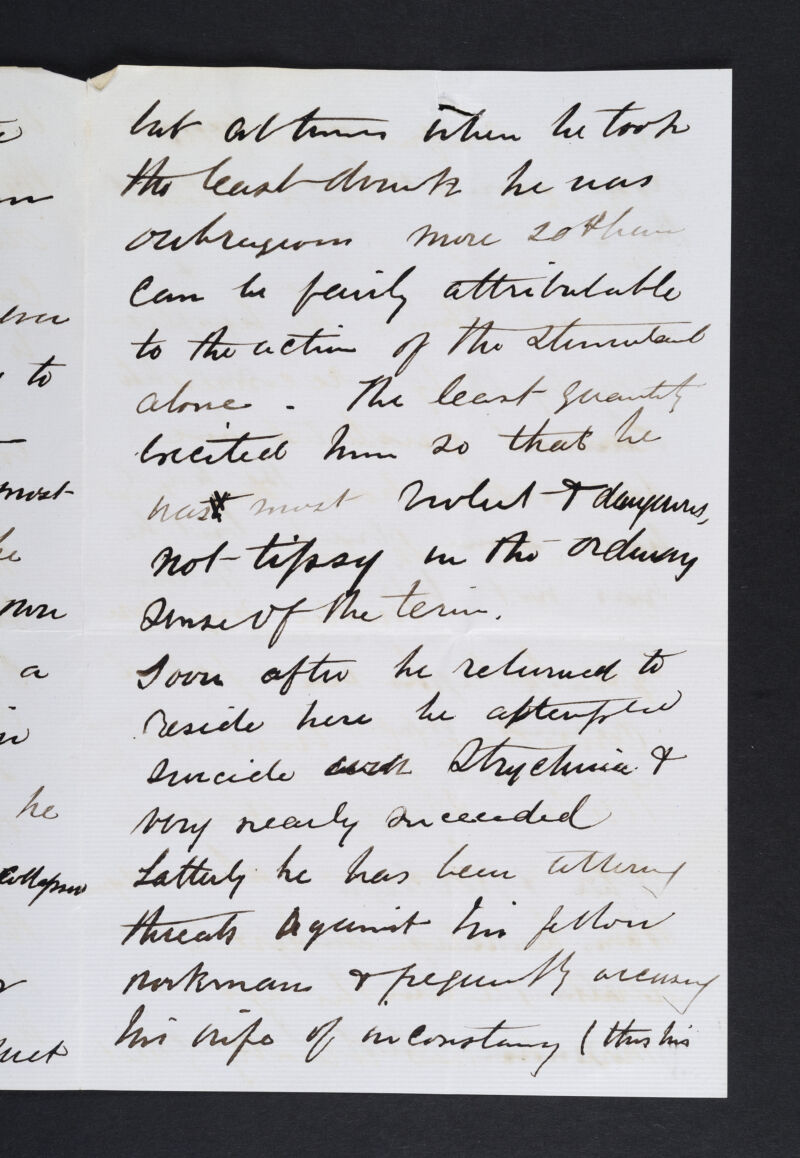 but at times when he took
the least drink he was
outrageous more so than
can be fairly attributable
to the action of the stimulant
alone. The least quantity
excited him so that he
was most violent & dangerous,
not tipsy in the ordinary
sense of the term.
Soon after he returned to
reside here he attempted
suicide with Strychnia &
very nearly succeeded
Latterly he has been uttering
threats against his fellow
workmans & frequently accusing
his wife of inconstancy (this his
to
most
he
a
he
collapsed